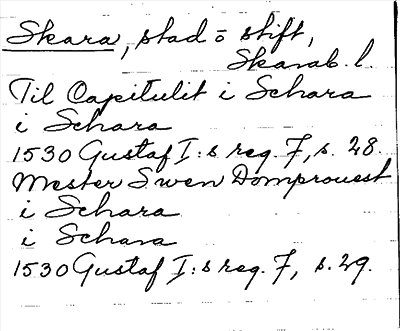 Skara, stad o stift,
Skarab. l.
Til Capitulit i Schara
i Schara
1530 Gustaf I:s reg. 7, s. 28.
Mester Swen Domprouest
i Schara
i Schara
1530 Gustaf I:s reg. 7, s. 29.